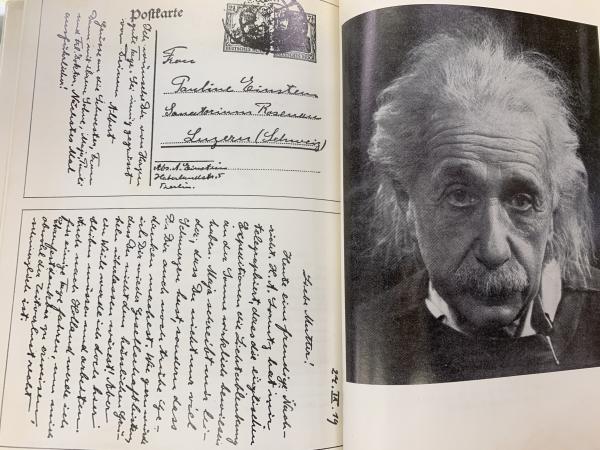 Postkarte
Frau
Pauline Einstein
Sanatorium Rosenau
Luzern (Schweiz)
Abs. A. Einstein
Haberlandstr. 5
Berlin.
Ich wünsche Dir von
gute Tage. Sei innig gegrüsst
von Deinem Albert
Grüsse an die Schwester, Frau
mit ihrem Sohne, Maja, Pauli
und Frl. Doktor. Nächstes Mal
ausführlicher!
27. IX. 19
Liebe Mutter!
Heute eine freudige Nach-
richt. H. A. Lorentz hat mir
telegraphiert, dass die englischen
Expeditionen die Lichtablenkung
an der Sonne wirklich bewiesen
haben. Maja schreibt mir lei-
der, dass Du nicht nur viel
Schmerzen hast, sondern dass
Du Dir auch noch trübe Ge-
danken machest. Wie gern würde
ich Dir wieder Gesellschaft leisten,
dass Du nicht dem hässlichen Grü-
beln überlassen wärest! Aber
ein Weile werde ich doch hier
bleiben müssen und arbeiten.
Auch nach Holland werde ich
für einige Tage fahren, um mich
Ehrenfest dankbar zu erweisen,
obwohl der Zeitverlust recht
schmerzlich ist.